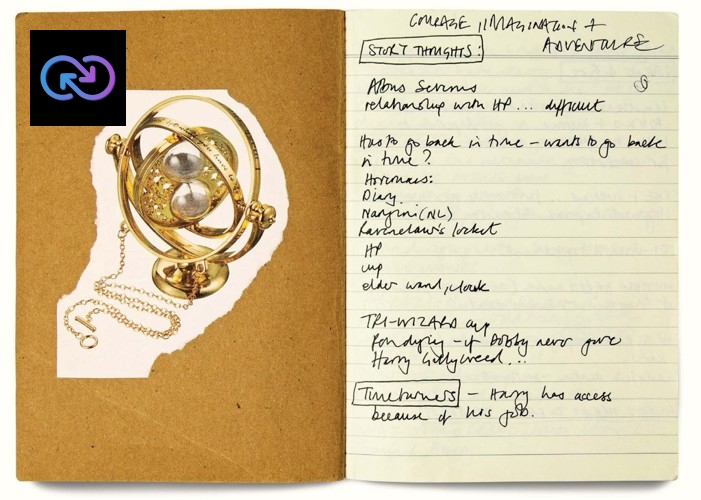 COURAGE, IMAGINATION +
ADVENTURE
STORY THOUGHTS:
Albus Severus
relationship with HP... difficult
Has to go back in time – wants to go back
in time?
Horcruxes:
Diary.
Nangini (NL)
Ravenclaw's locket
HP
cup
elder wand, cloak
TRI-WIZARD cup
Ron dying – if Dobby never gave
Harry Gillyweed...
Timeturners – Harry has access
because of his job.